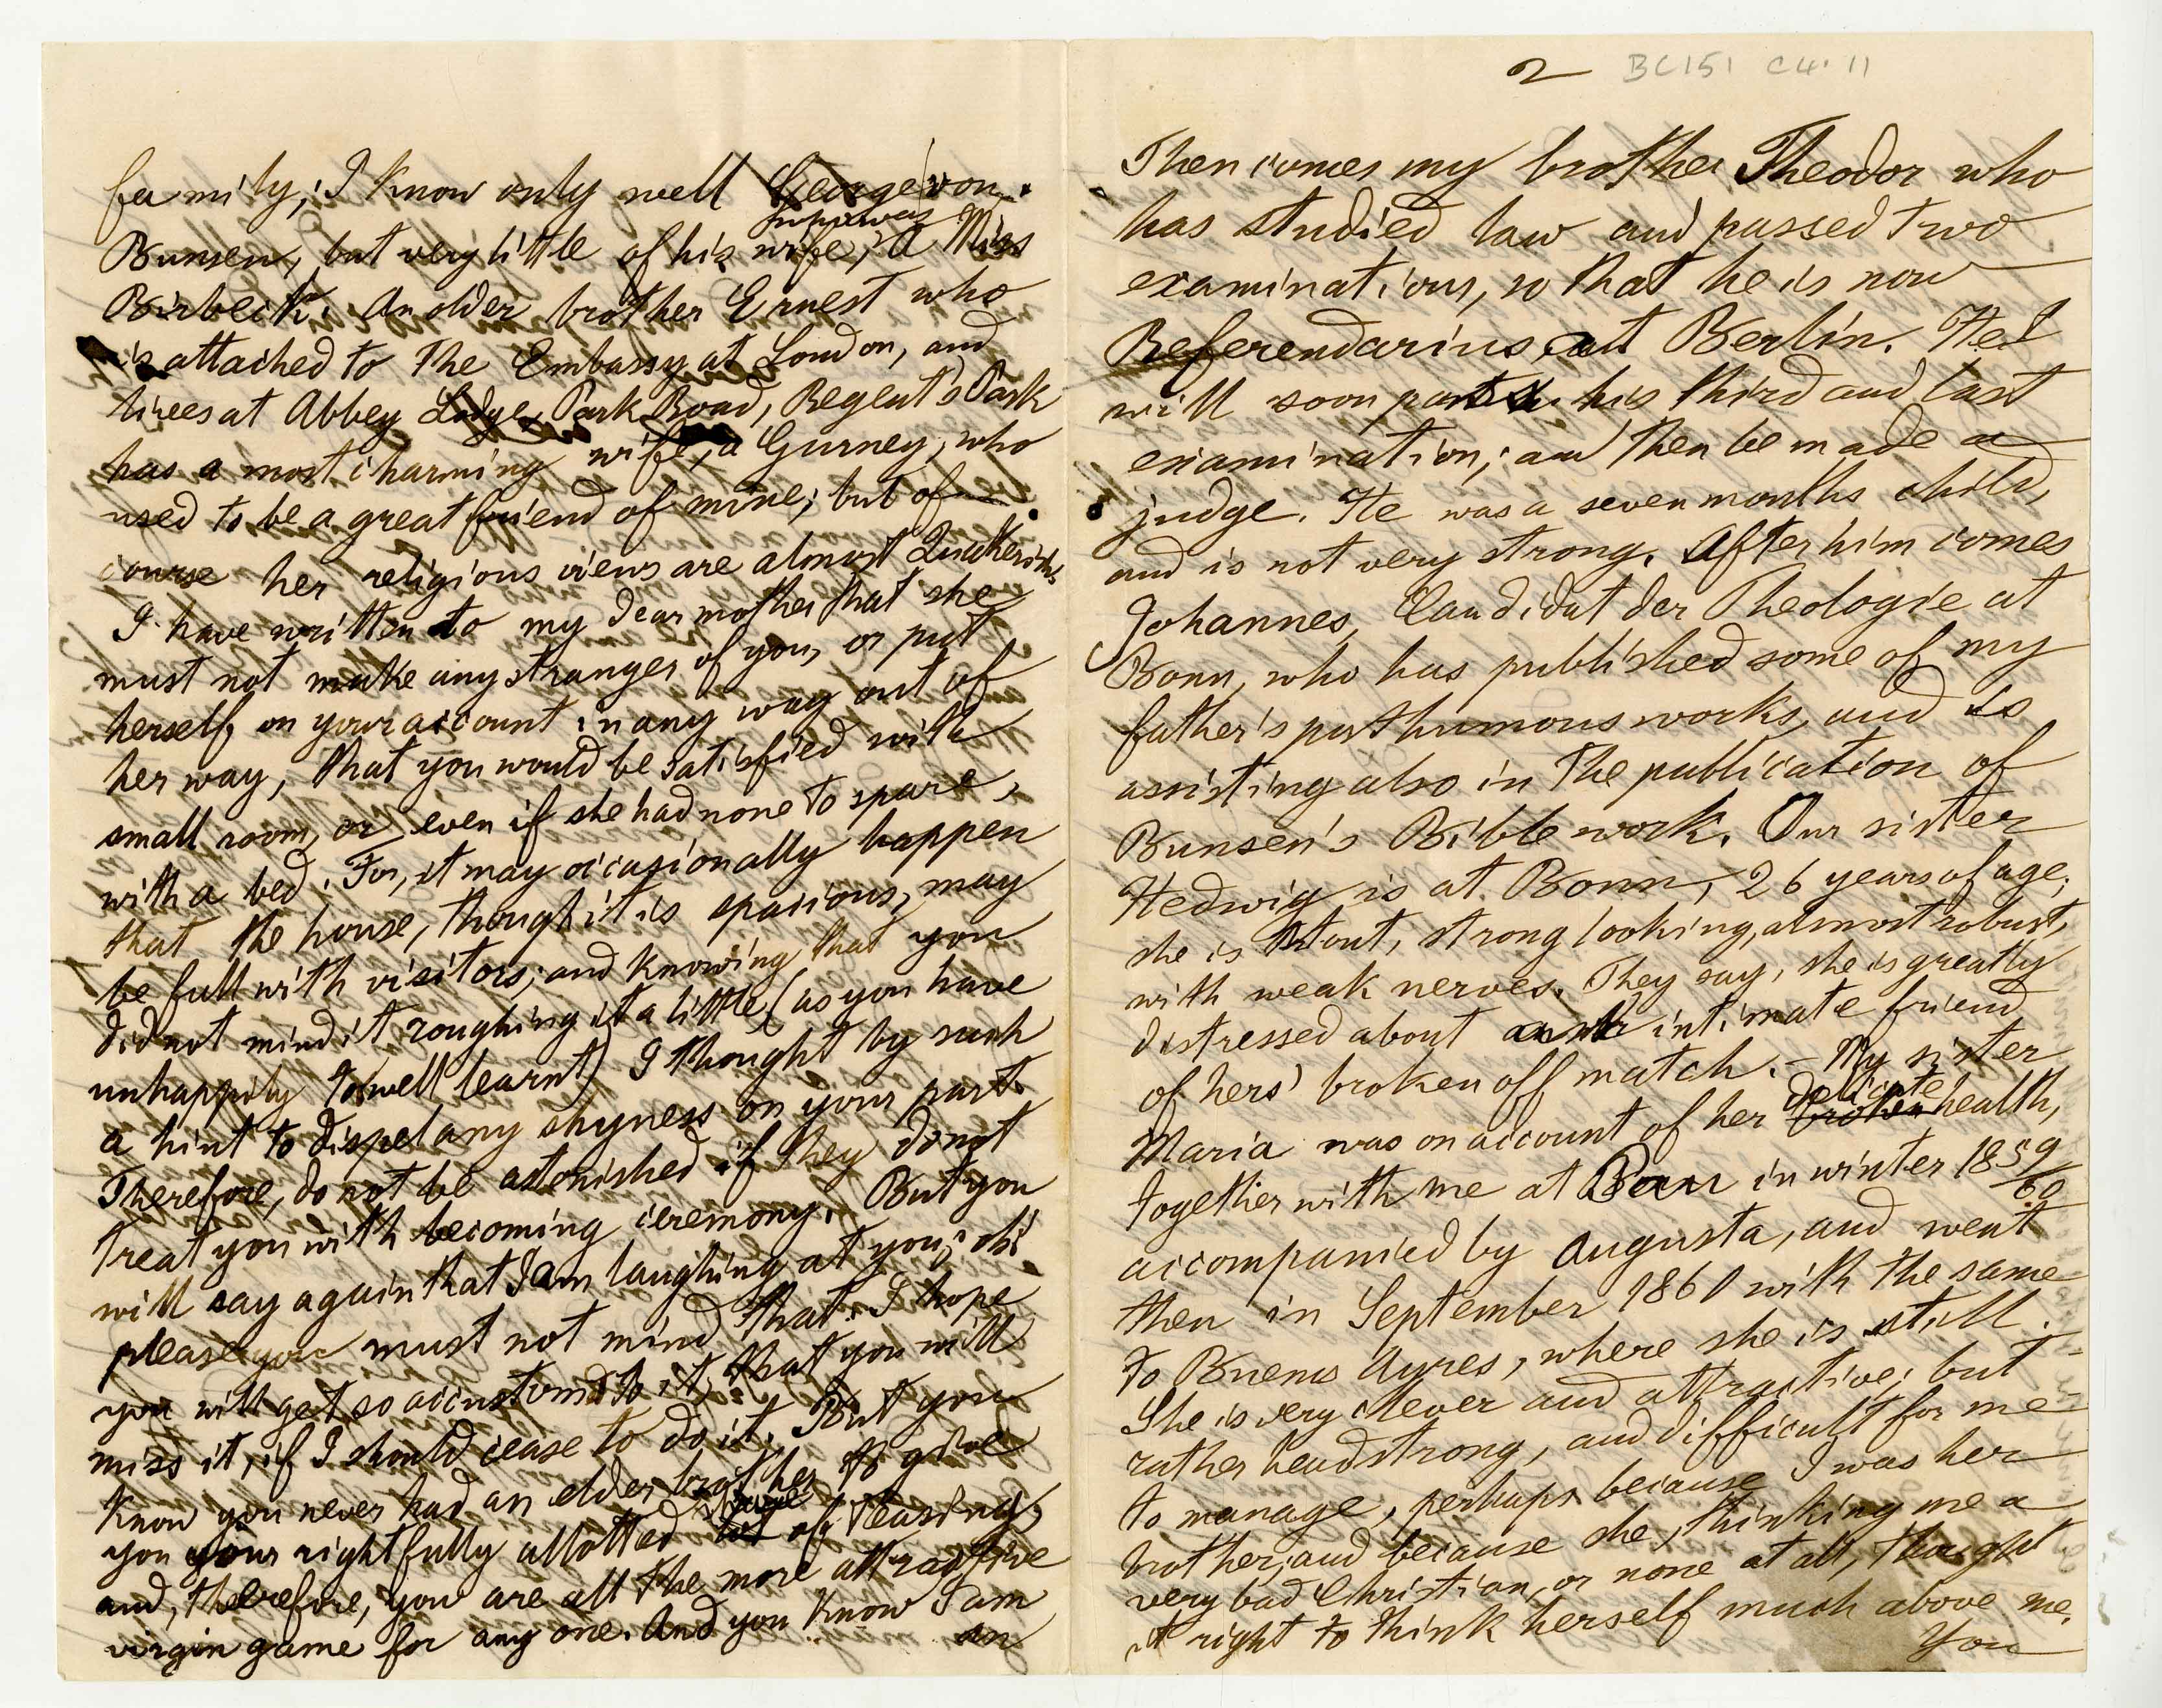 family; I know only well George von
Bunsen, but very little of his wife, a Miss
Birbeck. An older brother Ernest who
is attached to the Embassy at London, and
lives at Abbey Lodge, Park Road, Regent's Park
has a most charming wife, a Gurney, who
used to be a great friend of mine; but of
course her religious views are almost Quakerish.
I have written to my dear mother that she
must not make any stranger of you, or put
herself on your account in any way out of
her way, that you would be satisfied with
small room, or even if she had none to spare,
with a bed. For, it may occasionally happen
that the house, though it is spacious, may
be full with visitors; and knowing that you
did not mind it roughing it a little (as you have
unhappily to well learnt) I thought by such
a hint to dispel any shyness on your part.
Therefore, do not be astonished if they do not
treat you with becoming ceremony. But you
will say again that I am laughing at you; oh!
please you must not mind that. I hope
you will get so accustomed to it, that you will
miss it, if I should cease to do it. But you
know you never had an elder brother to give
you your rightfully allotted share of teasing,
and, therefore, you are all the more attractive
virgin game for any one. And you know I am
an
2 BC151 C4.11
Then comes my brother Theodor who
has studied law and passed two
examinations, so that he is now
Referendarius at Berlin. He
will soon pass his third and last
examination; and then be made a
judge. He was a seven months child,
and is not very strong. After him comes
Johannes, Candidat der Theologie at
Bonn, who has published some of my
father's posthumous works, and is
assisting also in the publication of
Bunsen's Bible work. Our sister
Hedwig is at Bonn, 26 years of age;
she is stout, strong looking, almost robust,
with weak nerves. They say, she is greatly
distressed about an intimate friend
of hers' broken off match. – My sister
Maria was on account of her delicate broken health,
together with me at Pau in winter 1859/60
accompanied by Augusta, and went
then in September 1861 with the same
to Buenos Ayres, where she is still.
She is very clever and attractive; but
rather headstrong, and difficult for me
to manage, perhaps because I was her
brother, and because she, thinking me a
very bad Christian, or none at all, thought
it right to think herself much above me.
You